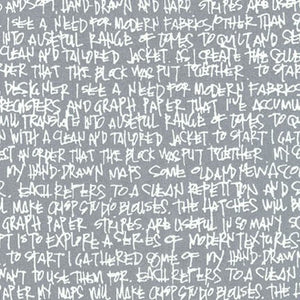 AND HAND DRAWN AND HARD STRIPES ARE
I SEE A NEED FOR MODERN FABRICS OTHER THAN S
INTO AUSEFUL RANGE OF TONES TO QUILT AND SE
CLEAN AND TAILORED JACKET. AS I CREATE THE COLLE
ORDER THAT THE BLOCK WAS PUT TOGETHER TO STAR
DESIGNER I SEE A NEED FOR MODERN FABRICS
AND GRAPH PAPER THAT I'VE ACCUMUL
WILL TRANSLATE INTO AUSEFUL RANGE OF TONES TO Q
N WITH A CLEAN AND TAILORED JACKET. TO START I GAT
EST AN ORDER THAT THE BLOCK WAS PUT TOGETHER MY G
MY HAND DRAWN MAPS SOME OLD AND NEW
EACH REFERS TO A CLEAN REPETITION AND S
ILL MAKE CRISP STUDIO BLOUSES. THE HATCHES WILL B
GRAPH PAPER STRIPES ARE USEFUL IN SO MANY S
PT IS TO EXPLORE A SERIES OF MODERN TEXTURES
TO START I GATHERED SOME OF MY HAND DRAWN
WANT TO USE THEM FOR. EACH REFERS TO A CLEAN
PAPER MY MAPS WILL MAKE CRISP STUDIO BLOUSES. THE